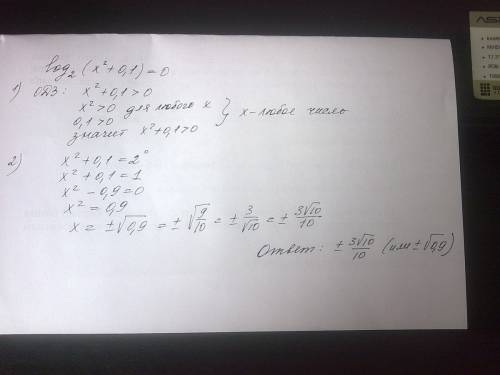 log₂ (x² + 0,1) = 0
1) ОДЗ: x² + 0,1 > 0
x² > 0 для любого x
0,1 > 0 } x - любое число
значит x² + 0,1 > 0
2) x² + 0,1 = 2⁰
x² + 0,1 = 1
x² - 0,9 = 0
x² = 0,9
x = ±√0,9 = ±√(9/10) = ± 3/√10 = ± 3√10/10
Ответ: ± 3√10/10 (или ±√0,9)